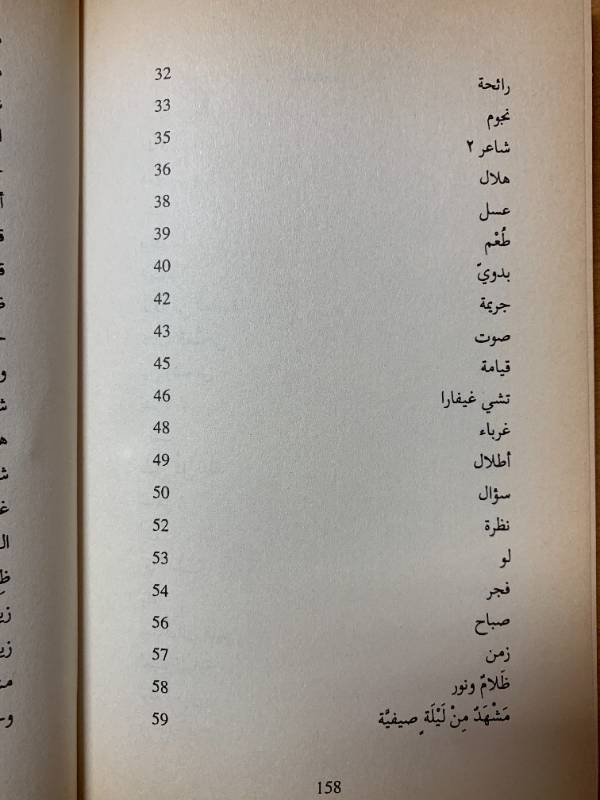 رائحة 32
نجوم 33
شاعر ٢ 35
هلال 36
عسل 38
طُعْم 39
بدويّ 40
جريمة 42
صوت 43
قيامة 45
تشي غيفارا 46
غرباء 48
أطلال 49
سؤال 50
نظرة 52
لو 53
فجر 54
صباح 56
زمن 57
ظَلامٌ ونور 58
مَشْهَدٌ مِنْ لَيْلَةٍ صيفيَّة 59
158